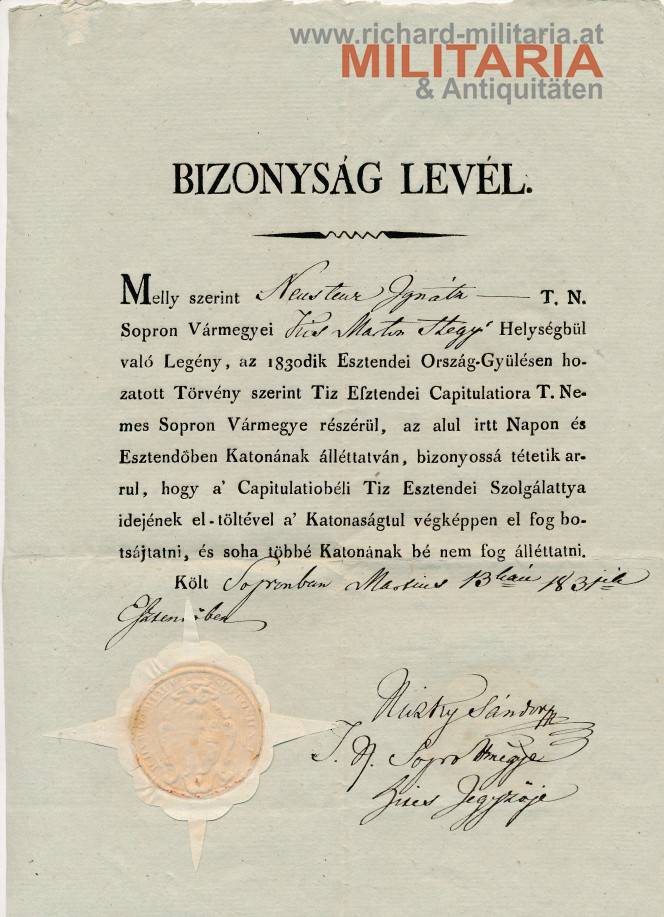 www.richard-militaria.at
MILITARIA
& Antiquitäten
BIZONYSÁG LEVÉL.
Melly szerint Neusteur Ignátz — T. N.
Sopron Vármegyei Kis Marton Hegyi Helységbül
való Legény, az 1830dik Esztendei Ország-Gyülésen ho-
zatott Törvény szerint Tiz Eſztendei Capitulatiora T. Ne-
mes Sopron Vármegye részérül, az alul irtt Napon és
Esztendőben Katonának álléttatván, bizonyossá tétetik ar-
rul, hogy a' Capitulatiobéli Tiz Esztendei Szolgálattya
idejének el-töltével a' Katonaságtul végképpen el fog bo-
tsájtatni, és soha többé Katonának bé nem fog álléttatni.
Költ Sopronban Martius 13 1831
Esztendőben
Sándor
T. N. Sopro Vmegye
Jegyzője